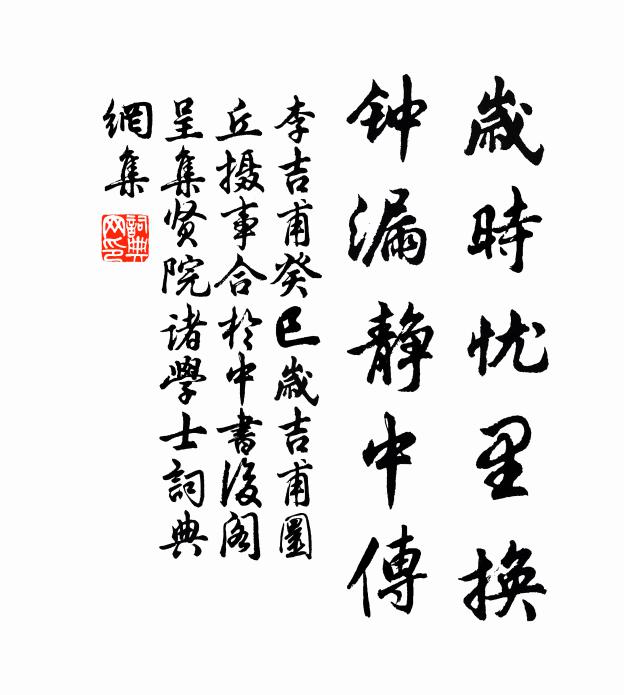 歲時忧里換
钟漏静中傳
李吉甫癸巳歲吉甫圜
丘摄事合於中書後阁
呈集贤院诸學士詞典
網集
詞典網印